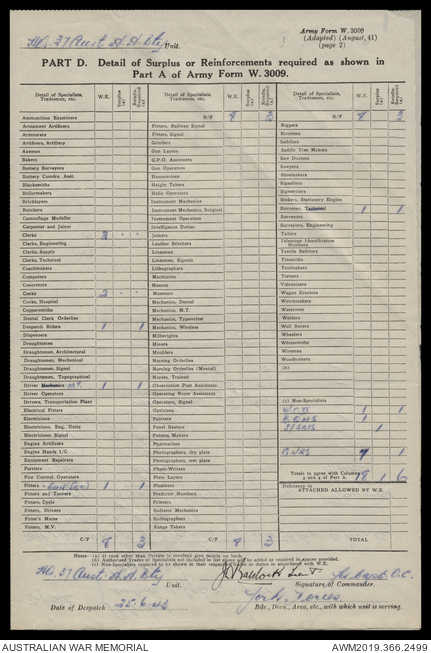 HQ. 37 Aust. A.A. Bty Unit.
Army Form W. 3009
(Adapted) (August, 41)
(page 2)
PART D. Detail of Surplus or Reinforcements required as shown in
Part A of Army Form W. 3009.
Detail of Specialists, Tradesmen, etc. W.E. Surplus (a) Reinfts. Required (a)
Ammunition Examiners
Armament Artificers
Armourers
Artificers, Artillery
Axemen
Bakers
Battery Surveyors
Blacksmiths
Boilermakers
Bricklayers
Butchers
Camouflage Modeller
Carpenter and Joiner
Clerks 3
Clerks, Engineering
Clerks, Supply
Clerks, Technical
Coachmakers
Computers
Concreters
Cooks 2
Cooks, Hospital
Coppersmiths
Dental Clerk Orderlies
Despatch Riders 1 1
Dispensers
Draughtsmen
Draughtsmen, Architectural
Draughtsmen, Mechanical
Draughtsmen, Signal
Draughtsmen, Topographical
Driver Mechanics 1 1
Driver Operators
Drivers, Transportation Plant
Electrical Fitters
Electricians
Electricians, Eng. Units
Electricians, Signal
Engine Artificers
Engine Hands I/C
Equipment Repairers
Farriers
Fire Control Operators
Fitters 1 1
Fitters and Turners
Fitters, Cycle
Fitters, Drivers
Fitter's Mates
Fitters, M.V.
C/F 8 3
Detail of Specialists, Tradesmen, etc. W.E. Surplus (a) Reinfts. Required (a)
B/F 8 3
Fitters, Railway Signal
Fitters, Signal
Grinders
Gun Layers
G.P.O. Assistants
Gun Operators
Hammermen
Height Takers
Helio Operators
Instrument Mechanics
Instrument Mechanics, Surgical
Intelligence Duties
Joiners
Leather Stitchers
Linesmen
Linesmen, Signals
Lithographers
Machinists
Masons
Masseurs
Mechanics, Dental
Mechanics, M.T.
Mechanics, Typewriter
Mechanics, Wireless
Millwrights
Miners
Moulders
Nursing Orderlies
Nursing Orderlies (Mental)
Nurses, Trained
Observation Post Assistants
Operating Room Assistants
Operators, Signal
Opticians
Painters
Panel Beaters
Pattern Makers
Pharmacists
Photographers, dry plate
Photographers, wet plate
Photo-Writers
Plate Layers
Plumbers
Predictor Numbers
Printers
Radiator Mechanics
Radiographers
Range Takers
C/F 8 3
Detail of Specialists, Tradesmen, etc. W.E. Surplus (a) Reinfts. Required (a)
B/F 8 3
Riggers
Riveters
Saddlers
Saddle Tree Makers
Saw Doctors
Sawyers
Shoemakers
Signallers
Signwriters
Stokers, Stationery Engine
Storemen, Technical 1 1
Surveyors
Surveyors, Engineering
Tailors
Telescope Identification Numbers
Textile Refitters
Tinsmiths
Toolmakers
Turners
Vulcanizers
Wagon Erectors
Watchmakers
Watermen
Welders
Well Borers
Wheelers
Whitesmiths
Wiremen
Woodturners
(b)
(c) Non-Specialists
1 1
B.Q.M.S. 1
1
GNRS 1
Totals to agree with Columns 3 and 4 of Part A. 1 6
Deficiency in
ATTACHED ALLOWED BY W.E.
TOTAL
Notes:— (a) If rank other than Private is involved give details on back.
(b) Authorised Trades or Specialists not included in list above will be added as required in spaces provided.
HQ. 37 Aust. A.A. Bty Unit.
Lieut
Signature of Commander.
York Forces
Bde., Divn., Area, etc., with which unit is serving.
Date of Despatch 25.6.43
AUSTRALIAN WAR MEMORIAL
AWM2019.366.2499